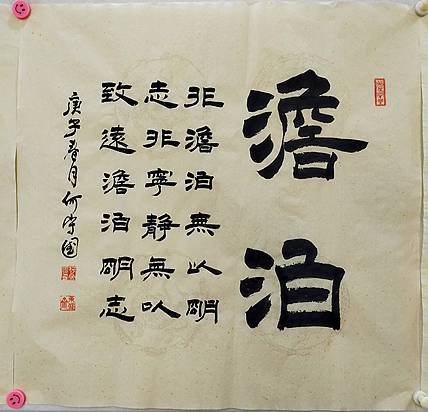 澹泊
非澹泊無以明
志非寧静無以
致遠澹泊明志
庚子春月何國